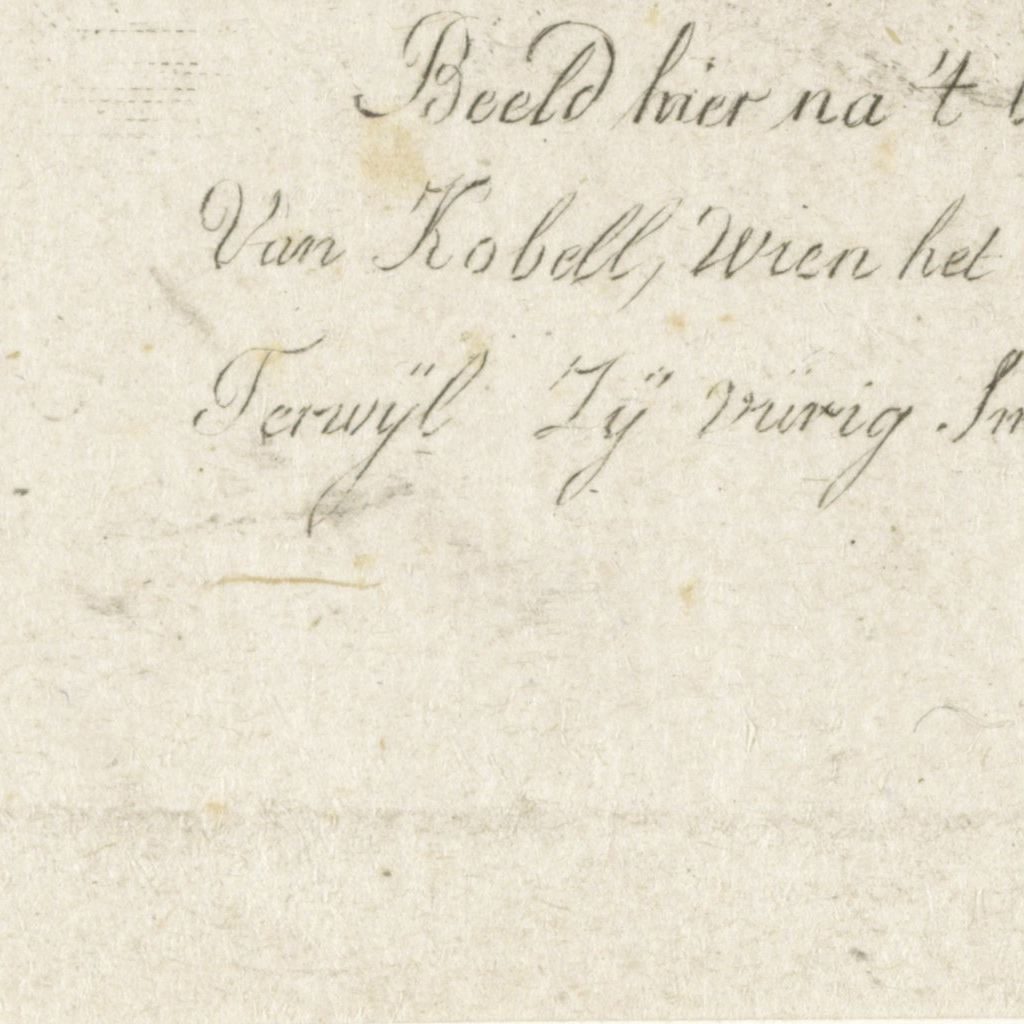 Beeld hier na 't
Van Kobell, Wien het
Terwÿl Zÿ vürig